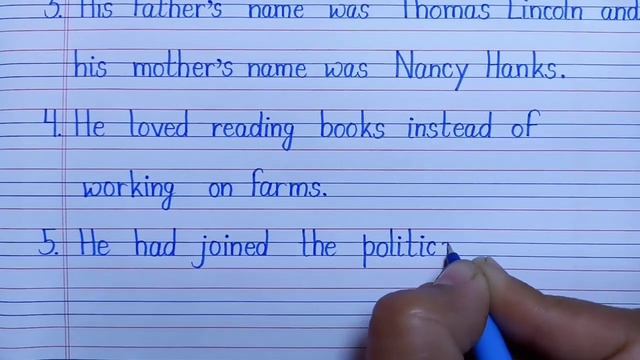 3. His Father's name was Thomas Lincoln and
his mother's name was Nancy Hanks.
4. He loved reading books instead of
working on farms.
5. He had joined the politic